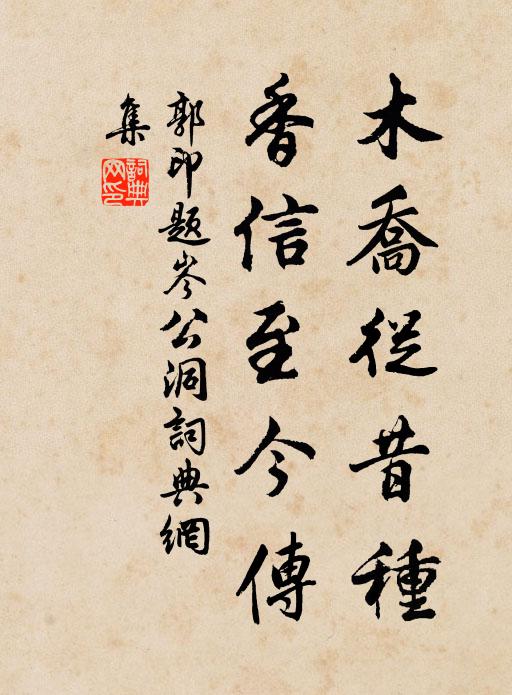 木喬從昔種
香信至今傳
郭印題岑公洞詞典網
集
詞典
网印